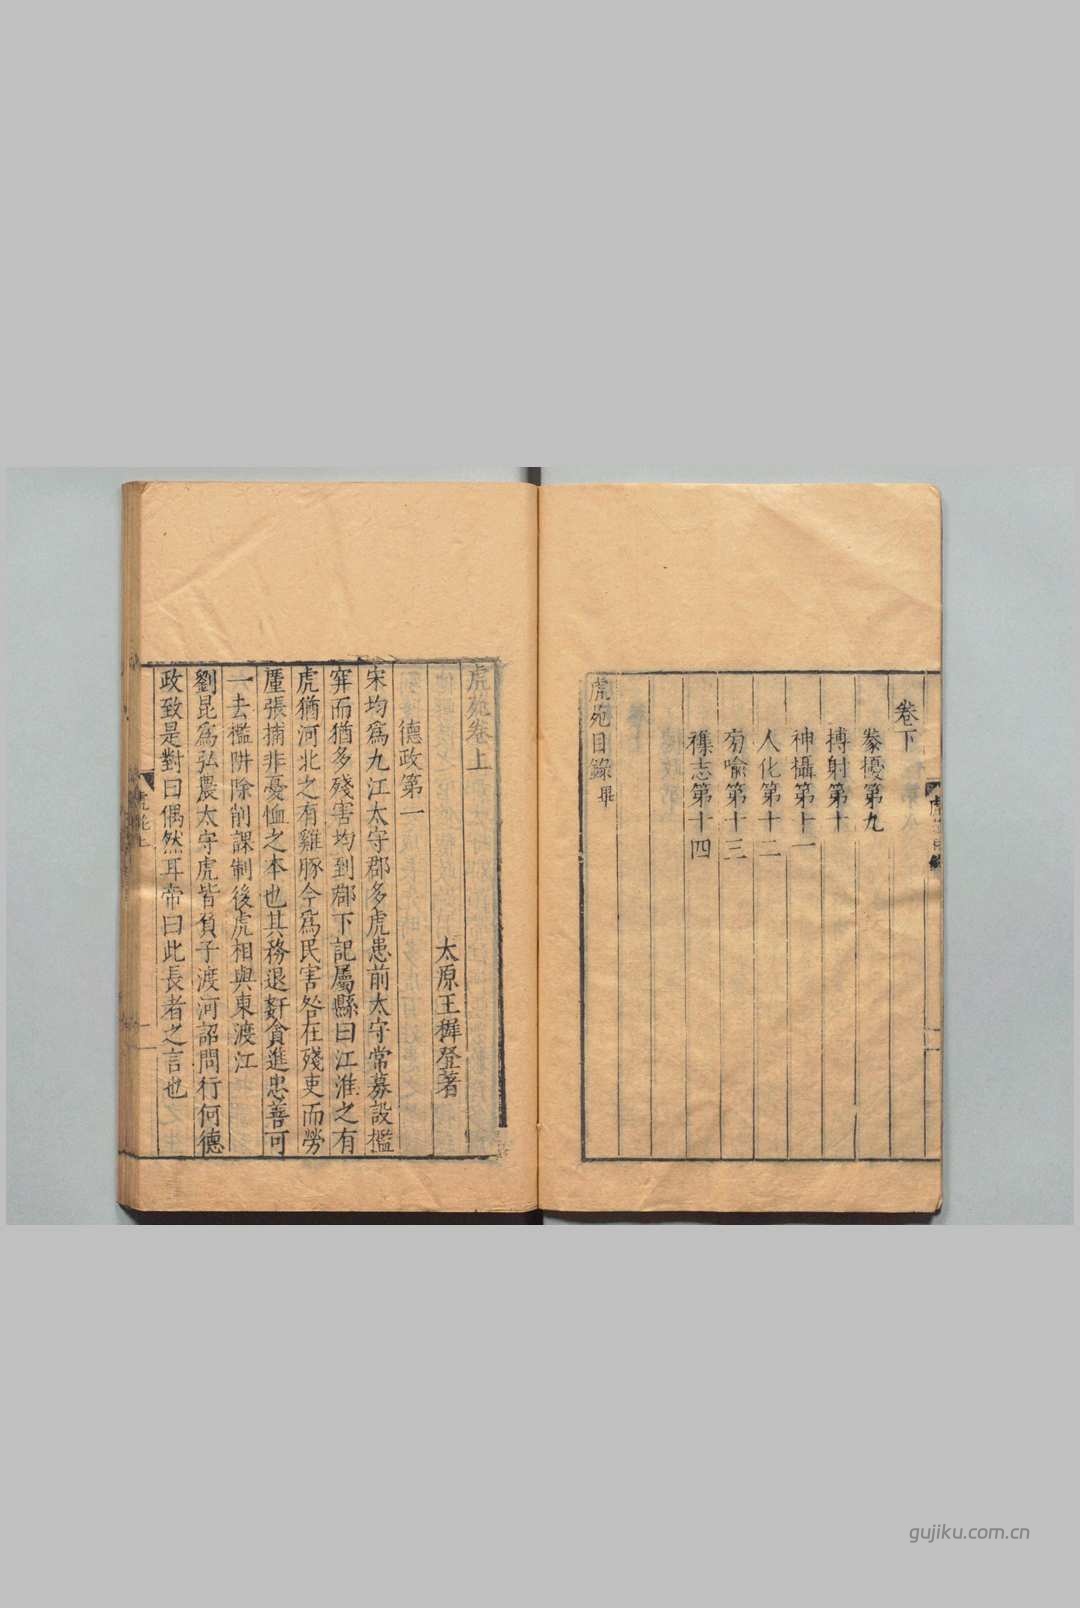 卷下
豢擾第九
搏射第十
神攝第十一
人化第十二
旁喻第十三
襍志第十四
虎苑目錄畢
虎苑卷上
太原王穉登著
德政第一
宋均爲九江太守郡多虎患前太守常募設檻
穽而猶多殘害均到郡下記屬縣曰江淮之有
虎猶河北之有雞豚今爲民害咎在殘吏而勞
厪張捕非憂恤之本也其務退姧貪進忠善可
一去檻阱除削課制後虎相與東渡江
劉昆爲弘農太守虎皆負子渡河詔問行何德
政致是對曰偶然耳帝曰此長者之言也
gujiku.com.cn